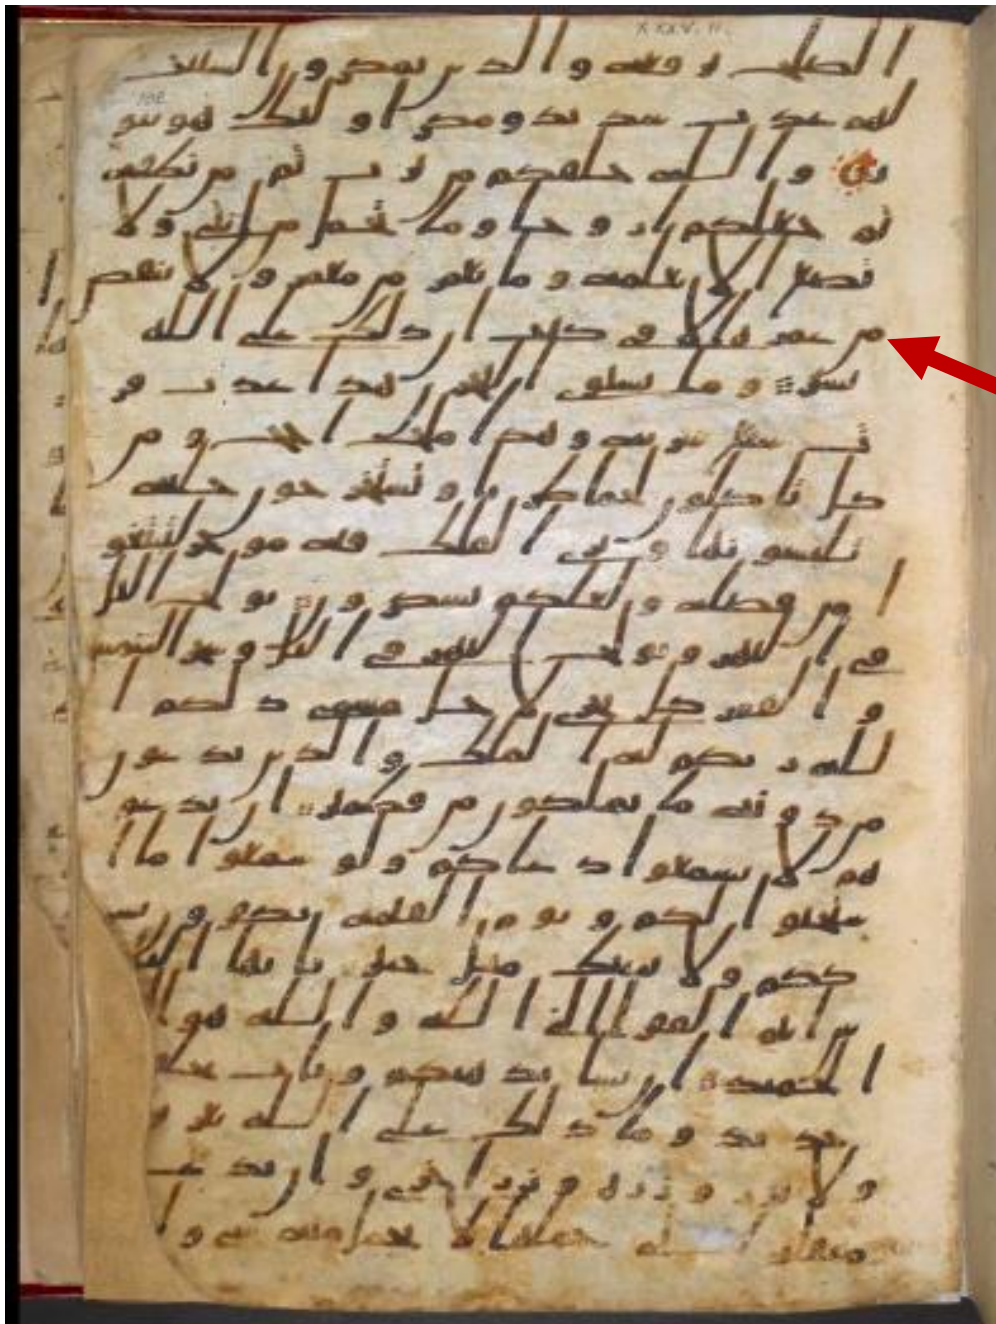 XXXV. 11.
الصلح يرفعه والذين يمكرون السيات
لهم عذاب شديد ومكر اولئك هو يبو
ر والله خلقكم من تراب ثم من نطفة
ثم جعلكم ازوجا وما تحمل من انثى ولا
تضع الا بعلمه وما يعمر من معمر ولا ينقص
من عمره الا في كتب ان ذلك على الله
يسير وما يستوي البحرن هذا عذب فر
ت سئغ شربه وهذا ملح اجج ومن
كل تاكلون لحما طريا وتستخرجون حلية
تلبسونها وترى الفلك فيه موخر لتبتغو
ا من فضله ولعلكم تشكرون يولج اليل
في النهر ويولج النهر في اليل وسخر الشمس
والقمر كل يجري لاجل مسمى ذلكم ا
لله ربكم له الملك والذين تدعون
من دونه ما يملكون من قطمير ان تدعو
هم لا يسمعوا دعاكم ولو سمعوا ما ا
ستجبوا لكم ويوم القيمة يكفرون بشر
ككم ولا ينبئك مثل خبير يايها النا
س انتم الفقرا الى الله والله هو
الحميد ان يشا يذهبكم ويات بخلق
جديد وما ذلك على الله بعزيز
ولا تزر وزرة وزر اخرى وان تدع
مثقلة الى حملها لا يحمل منه شي و